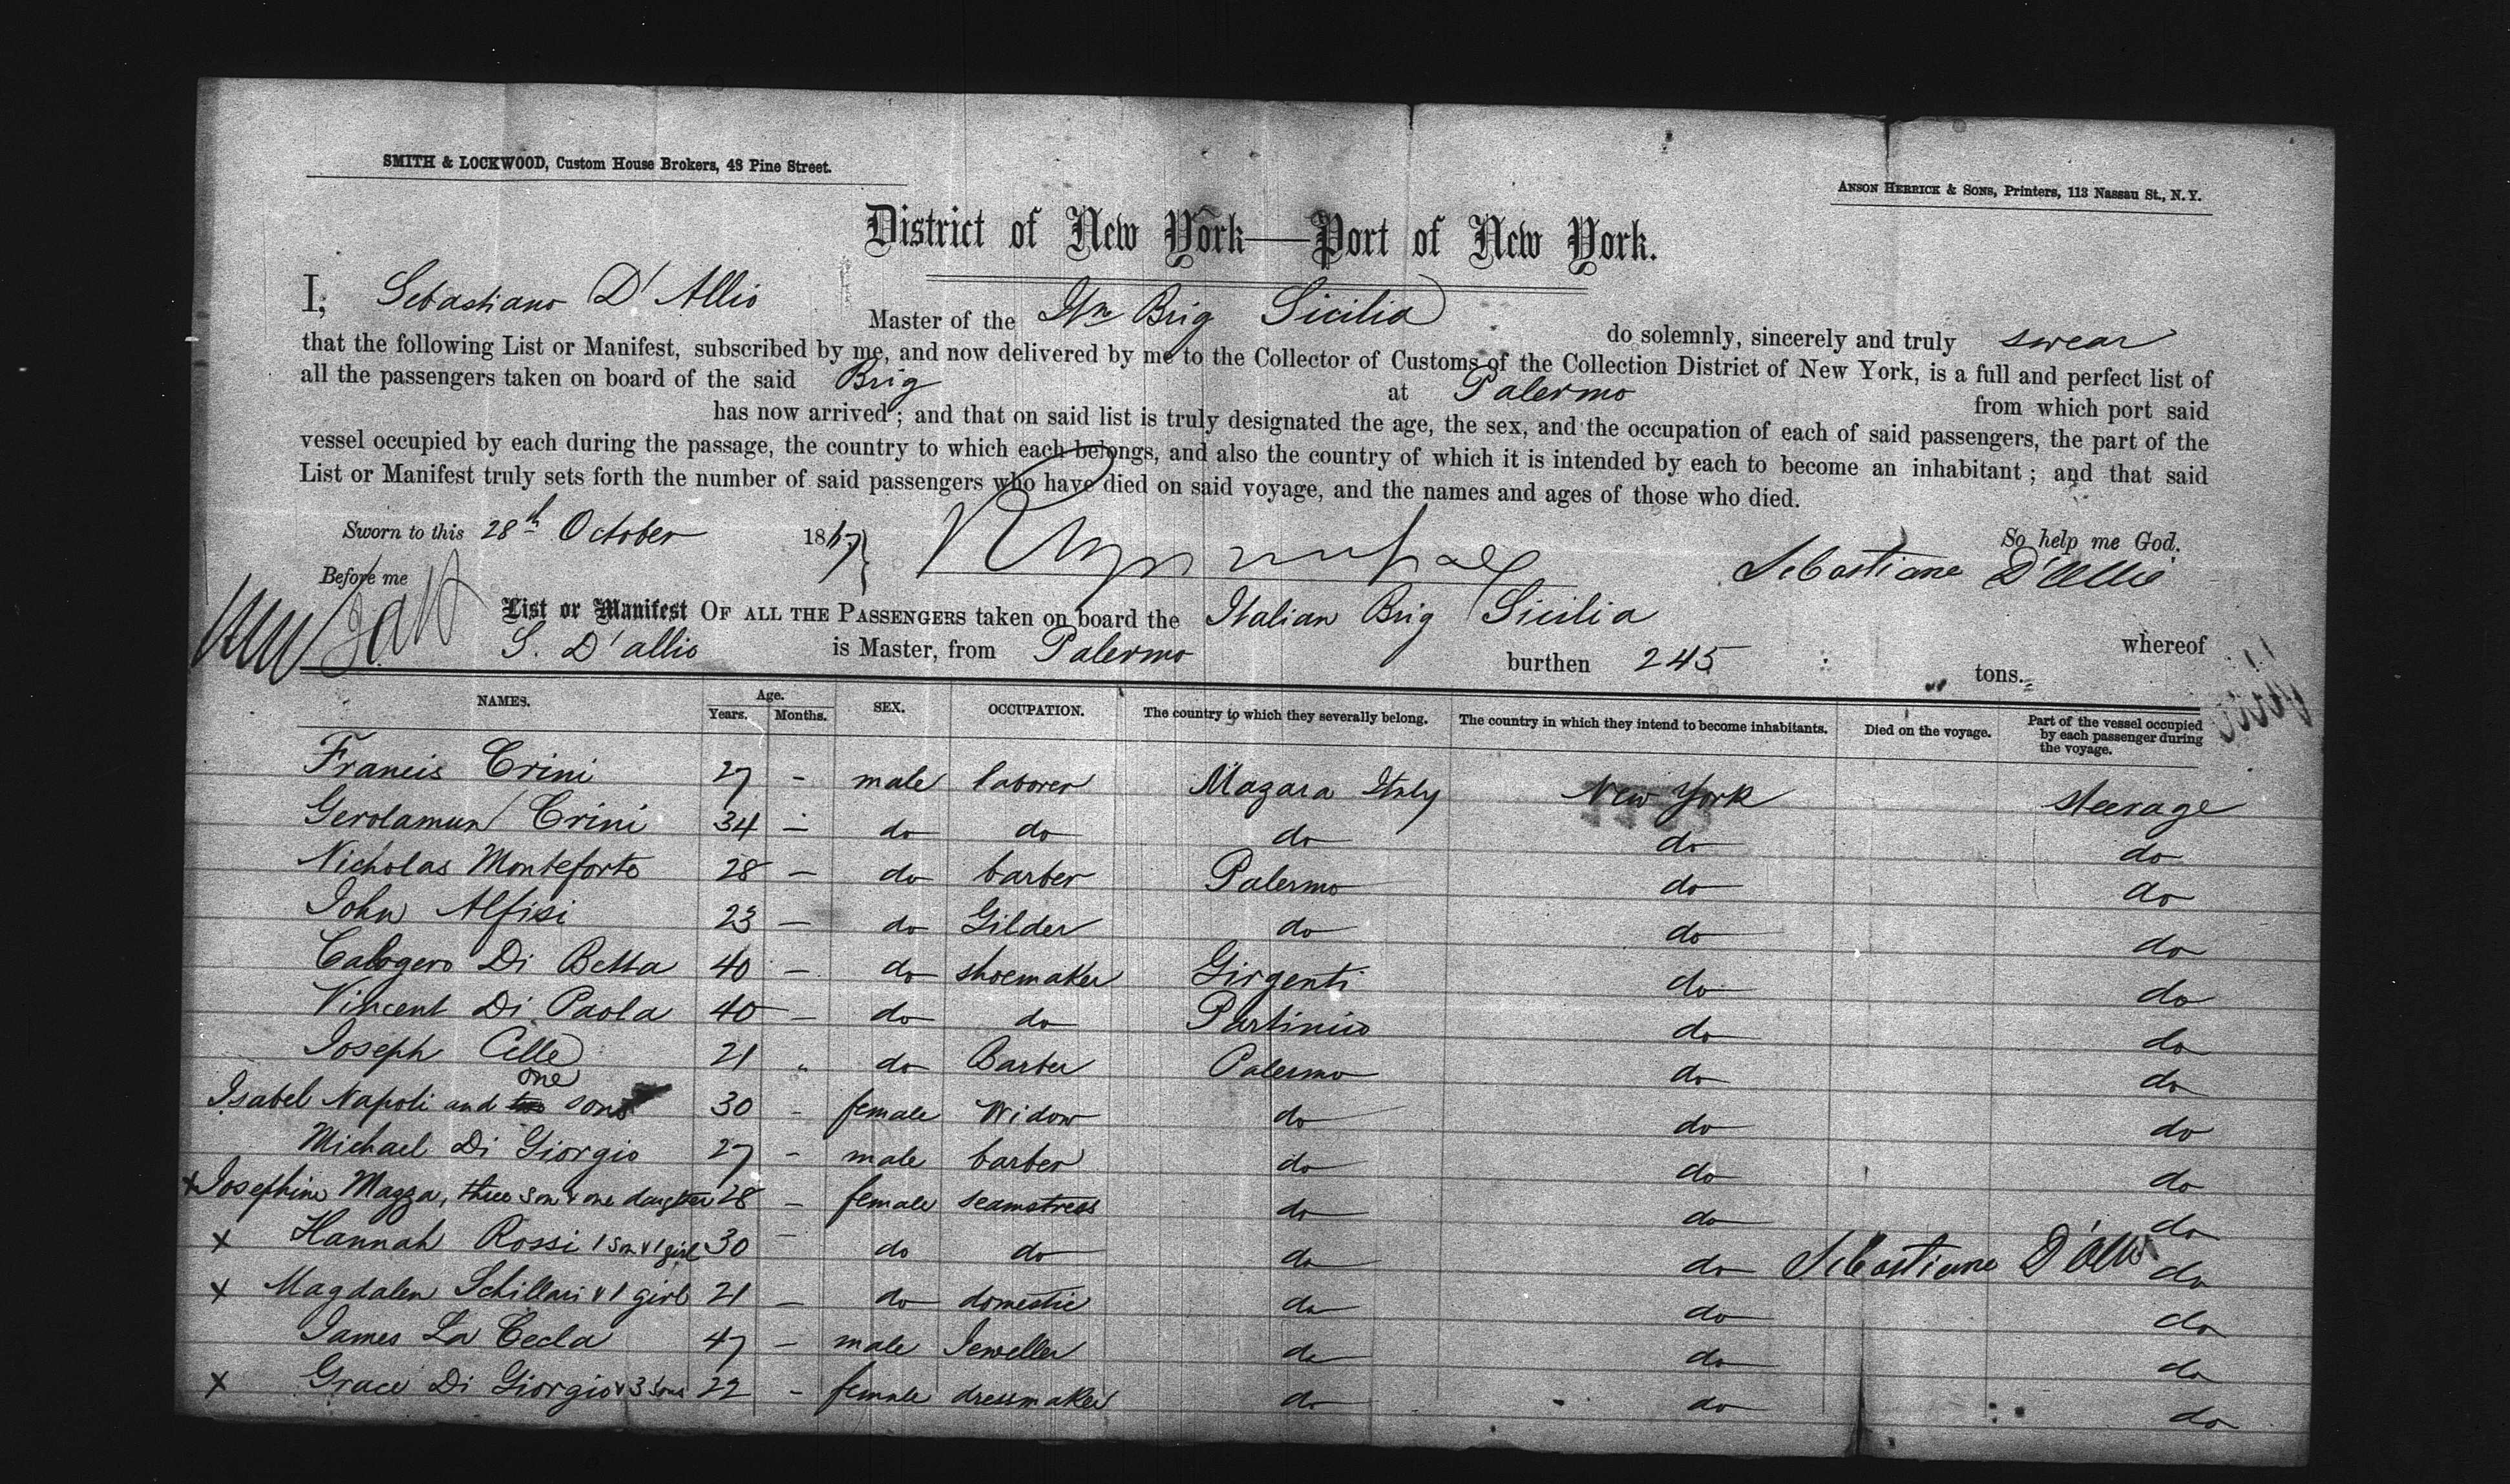 SMITH & LOCKWOOD, Custom House Brokers, 43 Pine Street.
ANSON HERRICK & SONS, Printers, 113 Nassau St., N.Y.
District of New York—Port of New York.
I, Sebastiano D'Allio Master of the Itn Brig Sicilia do solemnly, sincerely and truly swear
that the following List or Manifest, subscribed by me, and now delivered by me to the Collector of Customs of the Collection District of New York, is a full and perfect list of
all the passengers taken on board of the said Brig at Palermo from which port said
has now arrived; and that on said list is truly designated the age, the sex, and the occupation of each of said passengers, the part of the
vessel occupied by each during the passage, the country to which each belongs, and also the country of which it is intended by each to become an inhabitant; and that said
List or Manifest truly sets forth the number of said passengers who have died on said voyage, and the names and ages of those who died.
Sworn to this 28th October 1867 So help me God.
Before me Sebastiano D'Allio
List or Manifest OF ALL THE PASSENGERS taken on board the Italian Brig Sicilia whereof
S. D'allio is Master, from Palermo burthen 245 tons.
NAMES. Age. Years. Months. SEX. OCCUPATION. The country to which they severally belong. The country in which they intend to become inhabitants. Died on the voyage. Part of the vessel occupied by each passenger during the voyage.
Francis Crini 27 - male laborer Mazara Italy New York steerage
Gerolamun Crini 34 - do do do do do
Nicholas Monteforte 28 - do barber Palermo do do
John Alfisi 23 - do Gilder do do do
Calogero Di Betta 40 - do shoemaker Girgenti do do
Vincent Di Paola 40 - do do Partinico do do
Joseph Celle 21 " do Barber Palermo do do
Isabel Napoli and two one sons 30 - female Widow do do do
Michael Di Giorgio 27 - male barber do do do
x Josephine Mazza, three son & one daugter 28 - female seamstress do do do
x Hannah Rossi 1 son & 1 girl 30 - do do do do Sebastiano D'Allio do
x Magdalen Schillari & 1 girl 21 - do domestic do do do
James La Cecla 47 - male Jeweller do do do
x Grace Di Giorgio & 3 sons 22 - female dressmaker do do do